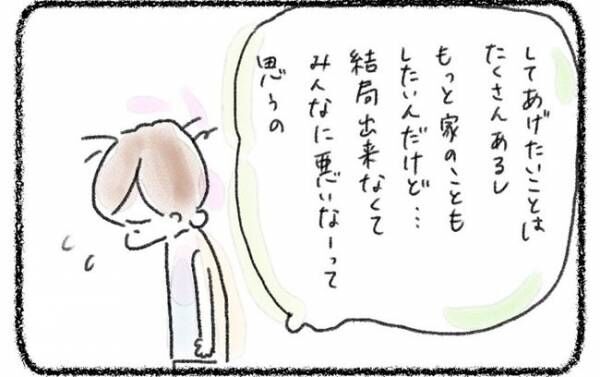 してあげたいことは
たくさんあるし
もっと家のことも
したいんだけど…
結局出来なくて
みんなに悪いなーって
思うの